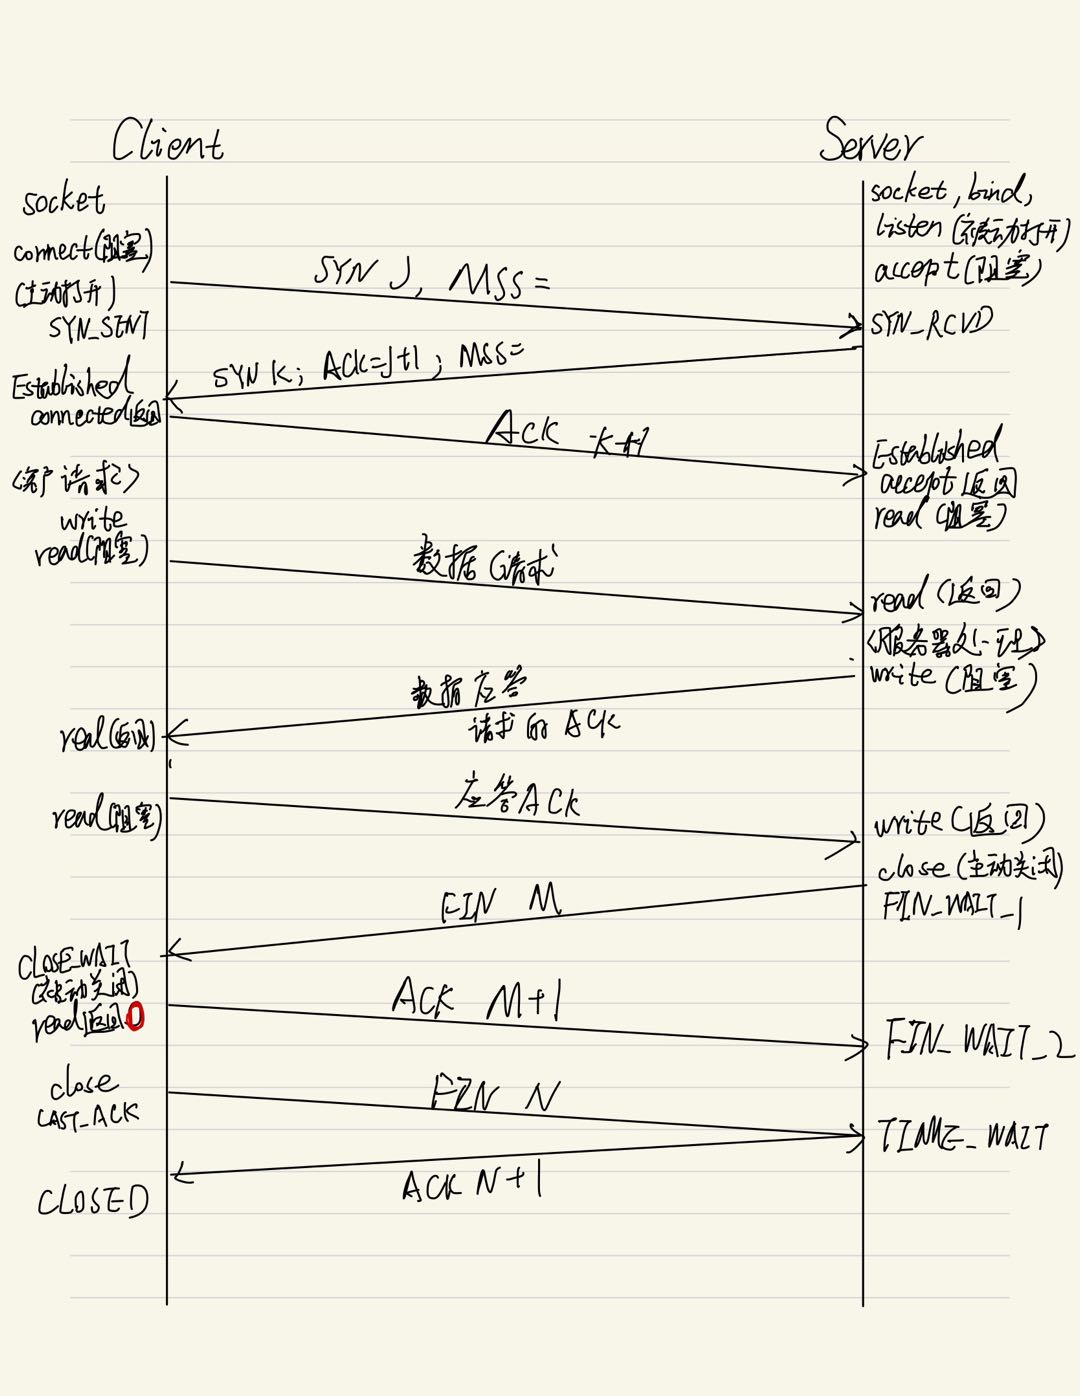 Client
Server
socket
socket, bind,
listen (被动打开)
connect(阻塞)
accept(阻塞)
(主动打开)
SYN J, MSS=
SYN_SENT
SYN_RCVD
SYN K; Ack=J+1; MSS=
Established
connected返回
Ack K+1
Established
accept返回
<客户请求>
read (阻塞)
write
read(阻塞)
数据(请求
read (返回)
<服务器处理>
write(阻塞)
数据应答
请求的ACK
read(返回)
应答ACK
read(阻塞)
write(返回)
close(主动关闭)
FIN M
FIN_WAIT_1
CLOSE_WAIT
(被动关闭)
read返回0
ACK M+1
FIN_WAIT_2
close
FIN N
LAST_ACK
TIME_WAIT
ACK N+1
CLOSED